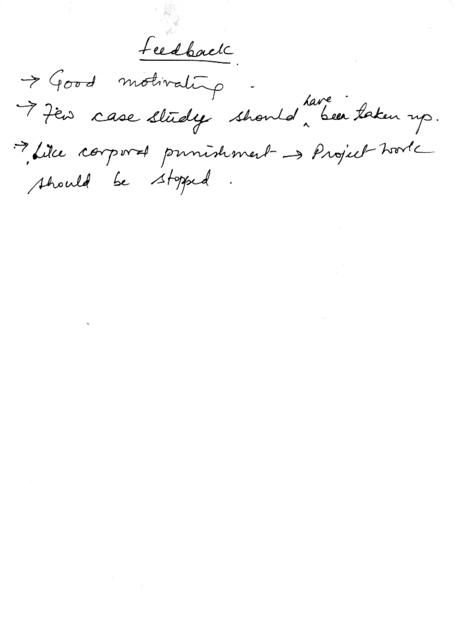 Feedback
→ Good motivating .
→ Few case study should have been taken up.
→ Like corporal punishment → Project work
should be stopped .